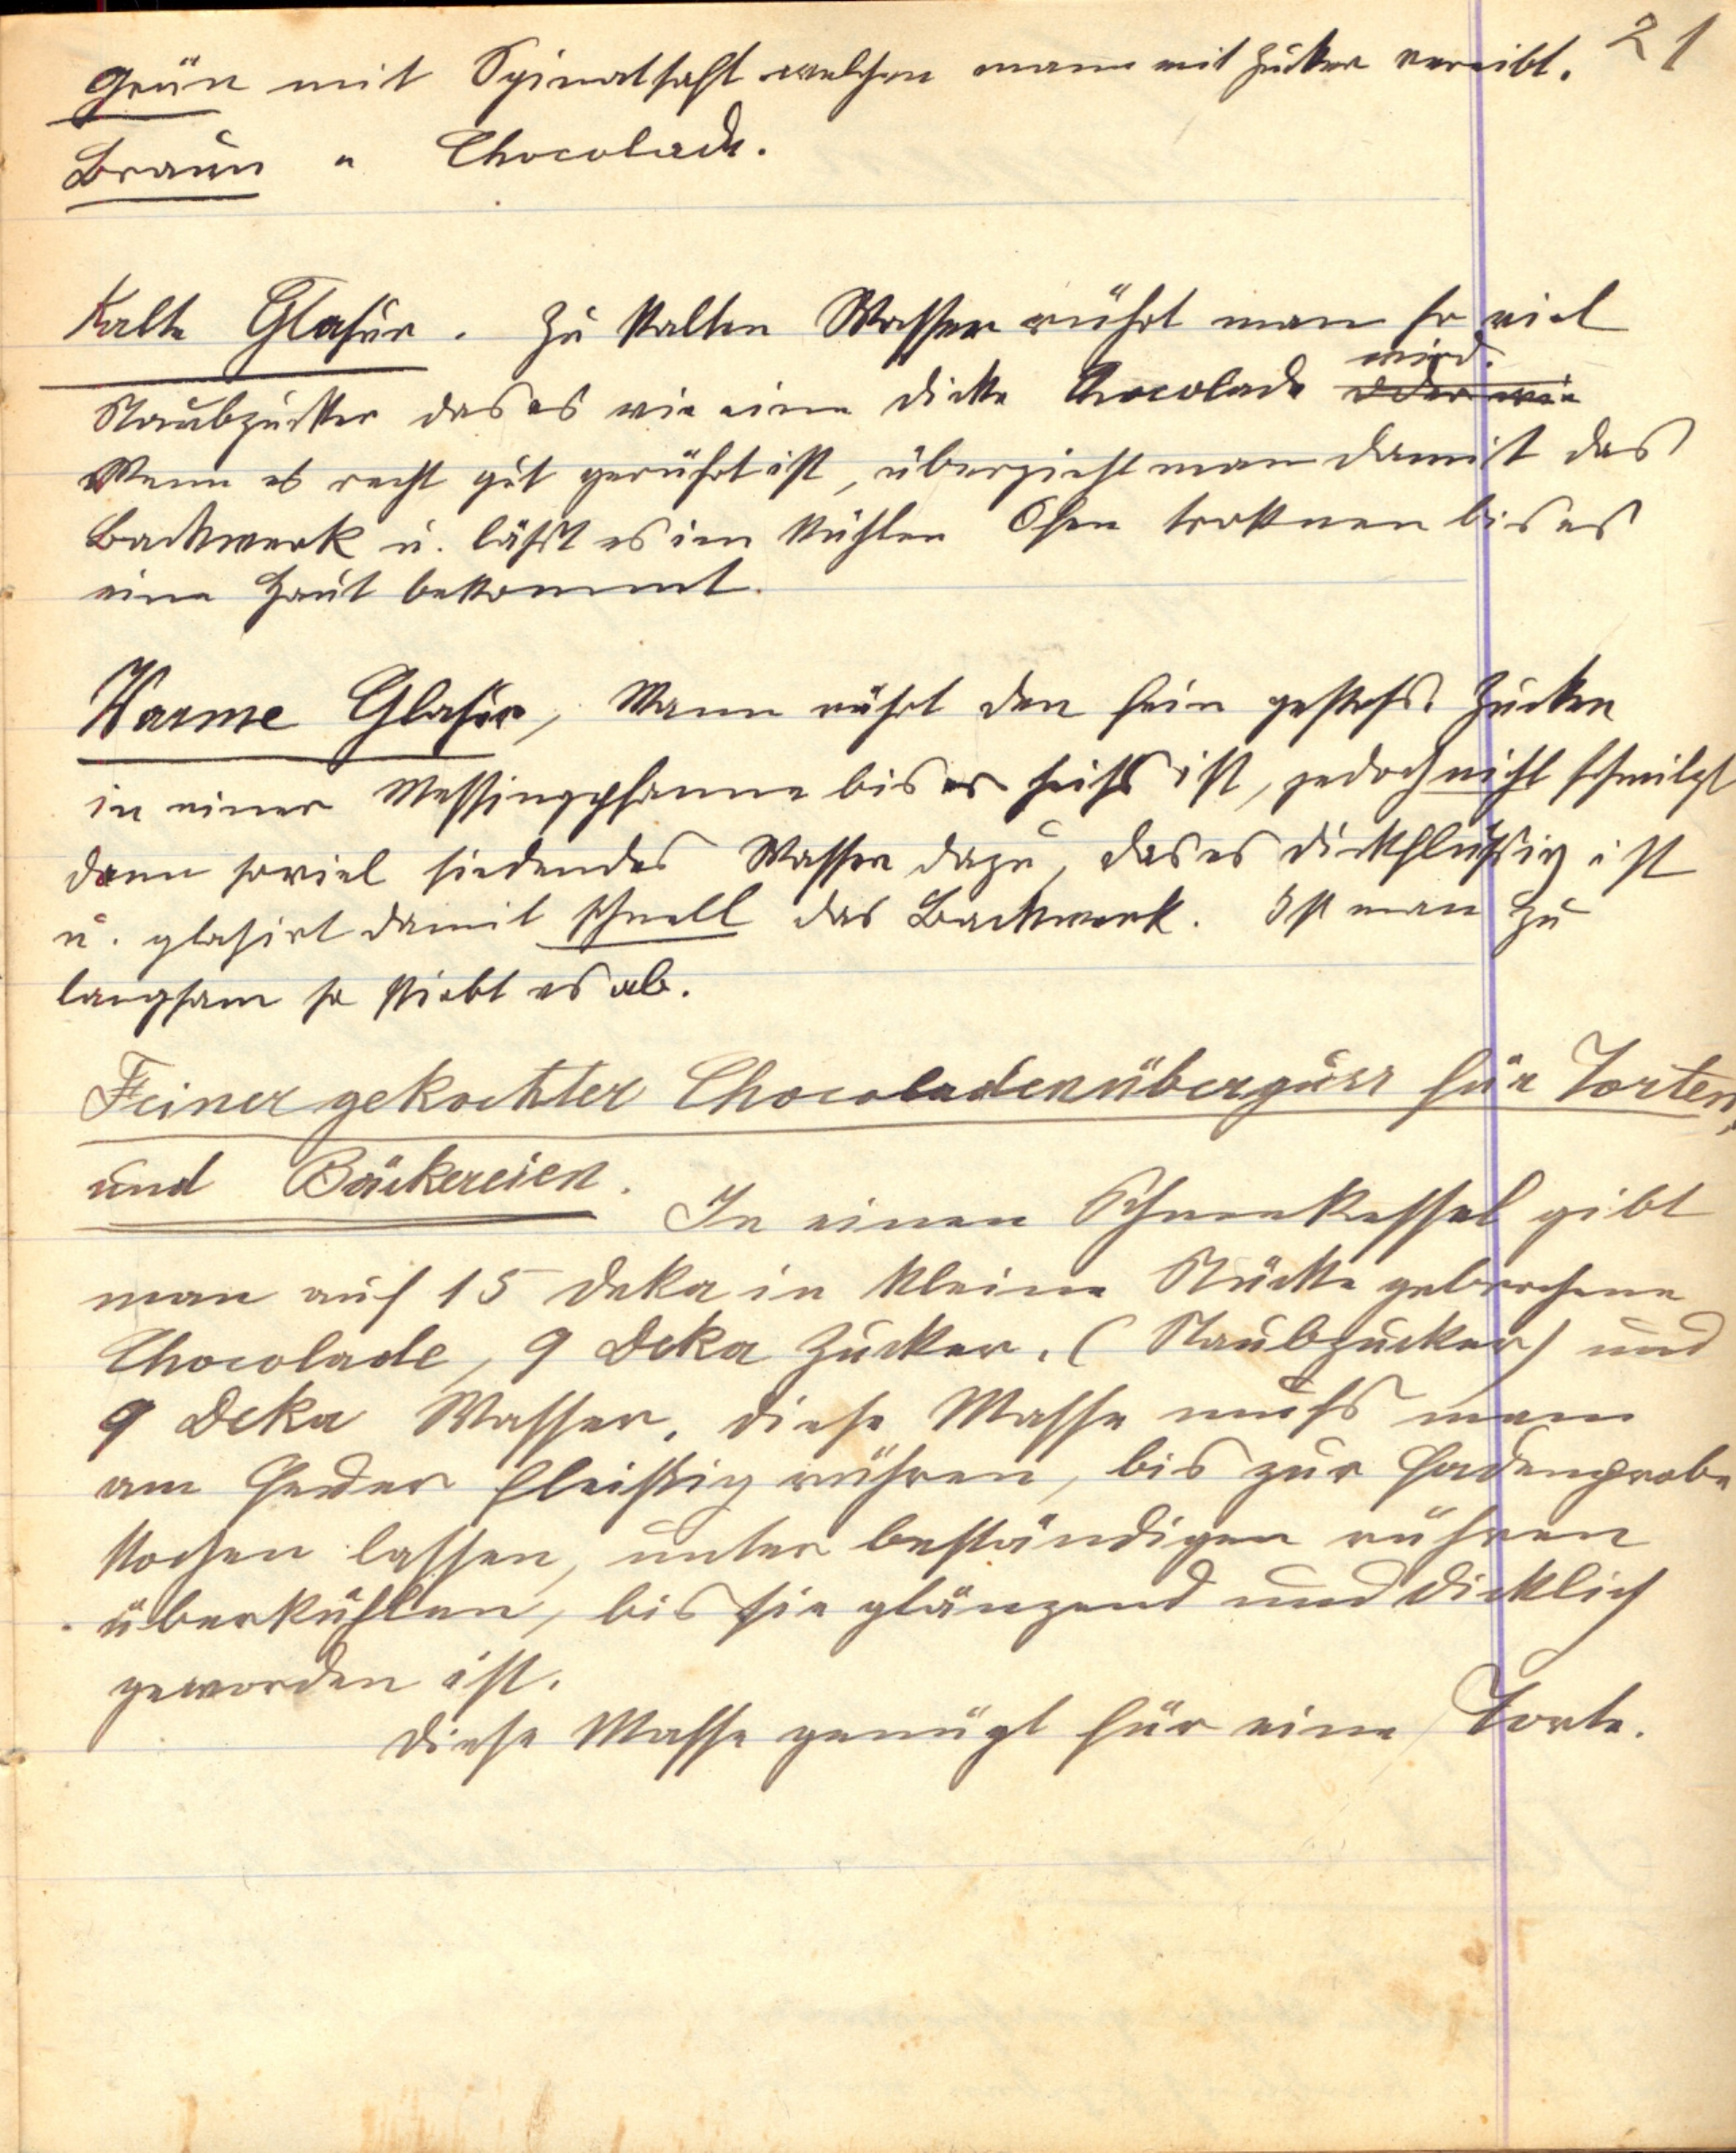 21
Grün mit Spinatsaft welchen man mit Zucker verreibt.
Braun " Chocolade.
Kalte Glasur. Zu kalten Wasser rührt man so viel
wird.
Staubzucker das es wie eine dicke Chocolade oder wie
Wenn es recht gut gerührt ist, überzieht man damit das
Backwerk u. läßt es im kühlen Ofen trocknen bis es
eine Haut bekommt.
Warme Glasur, Mann rührt den fein gestoß. Zucker
in einer Messingpfanne bis er heiß ist, jedoch nicht schmilzt
dann soviel siedendes Wasser dazu, das es dickflüßig ist
u. glasirt damit schnell das Backwerk. Ist man zu
langsam so stirbt es ab.
Feiner gekochter Chocoladenüberguss für Torten,
und Bäckereien. In einen Schneekessel gibt
man auf 15 Deka in kleine Stücke gebrochene
Chocolade, 9 Deka Zucker. (Staubzucker) und
9 Deka Wasser. Diese Masse muß man
am Feuer fleißig rühren, bis zur Fadenprobe
kochen lassen, unter beständigen rühren
überkühlen, bis sie glänzend und dicklich
geworden ist.
Diese Masse genügt für eine Torte.